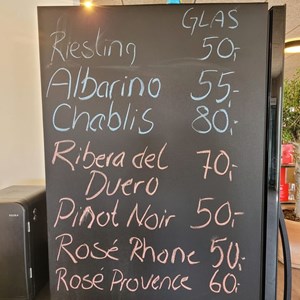 GLAS
Riesling 50,-
Albarino 55,-
Chablis 80,-
Ribera del 70,-
Duero
Pinot Noir 50,-
Rosé Rhone 50,-
Rosé Provence 60,-